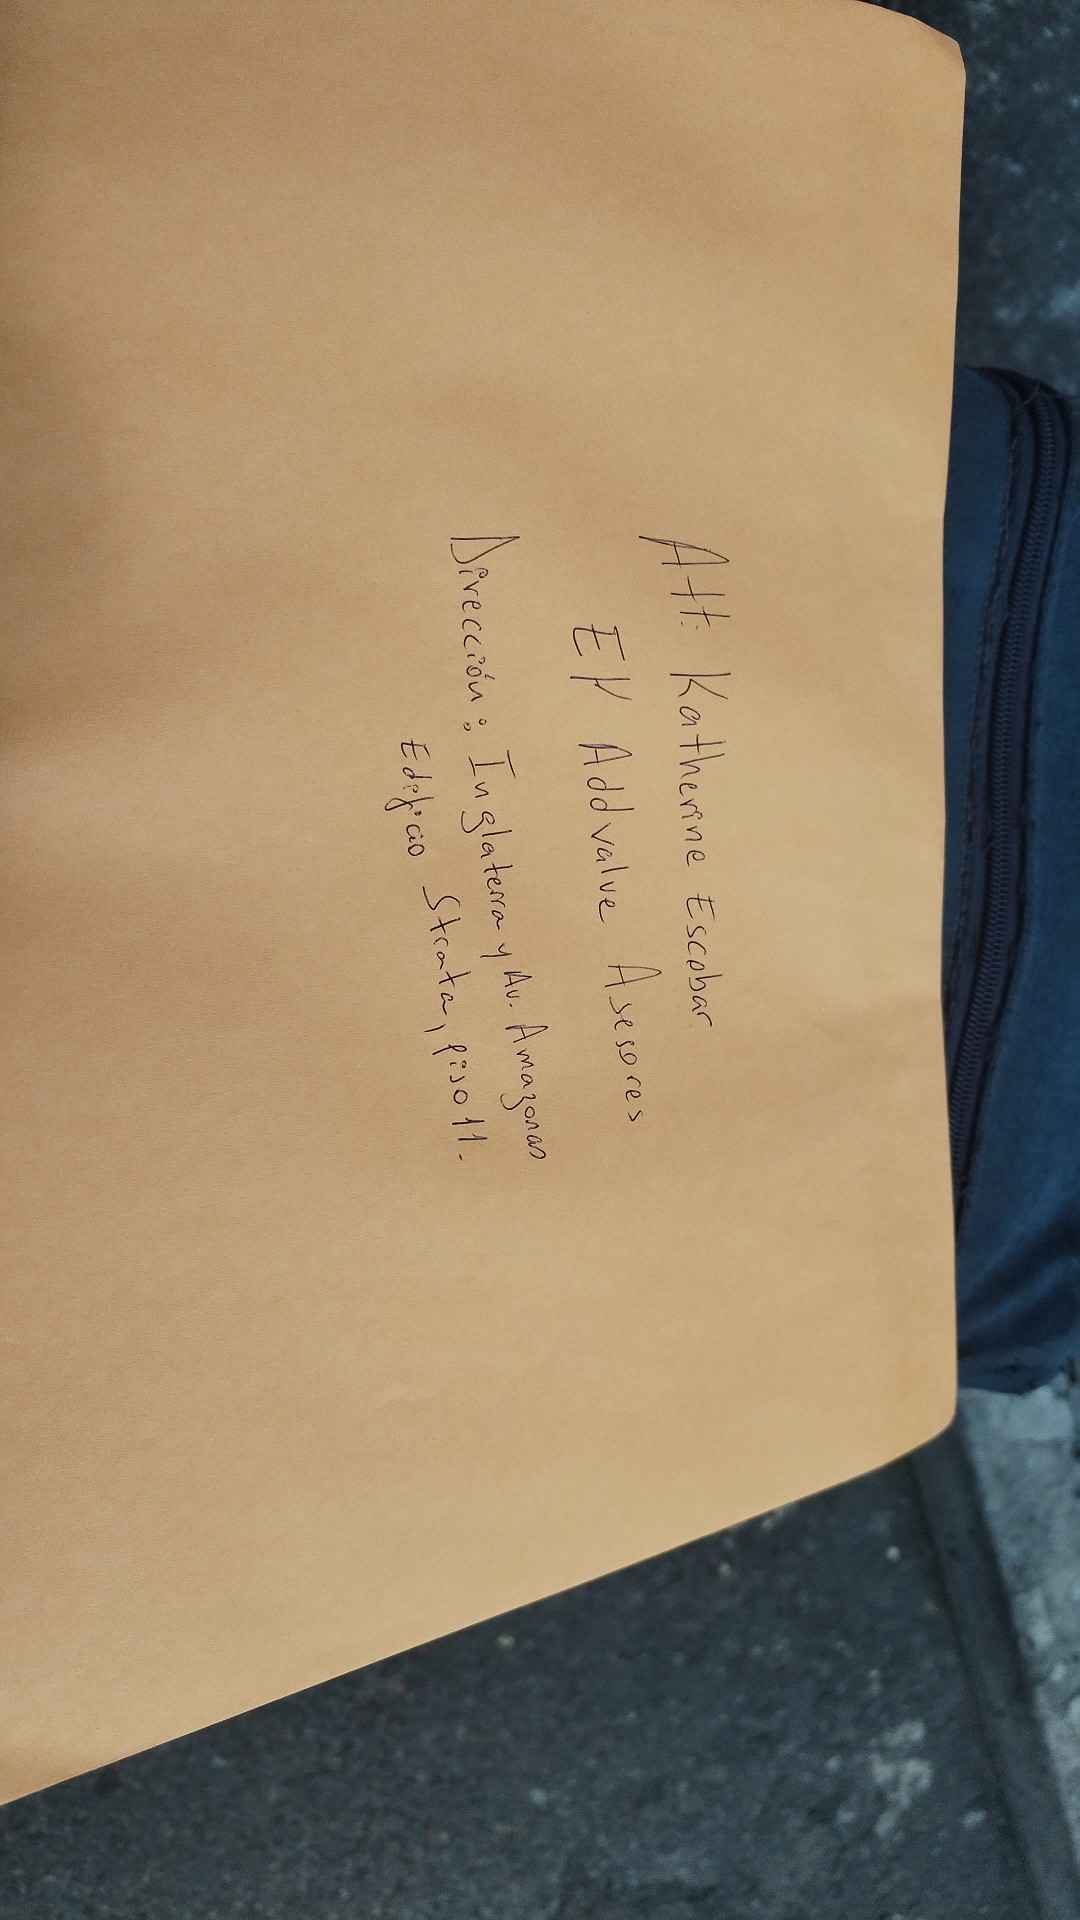 Att: Katherine Escobar
EK Addvalue Asesores
Dirección: Inglaterra y Av. Amazonas
Edificio Strata, piso 11.